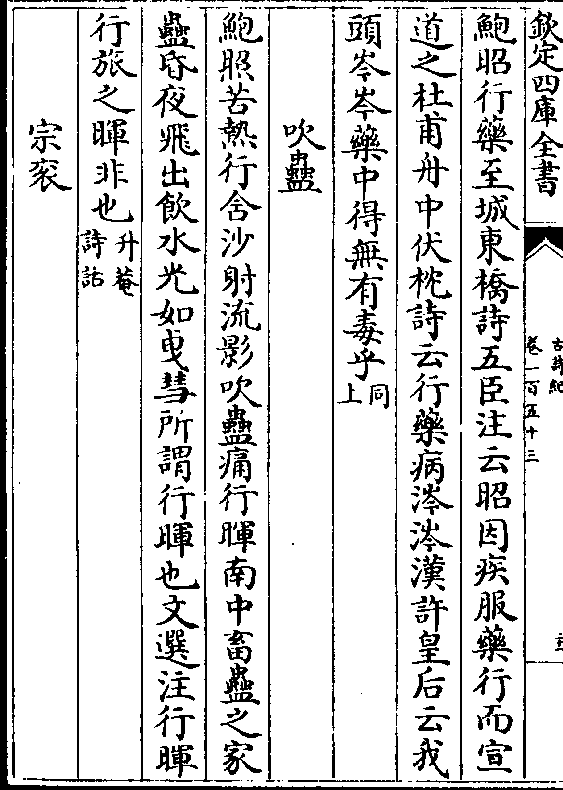 欽定四庫全書
古詩紀
卷一百五十三
鮑昭行藥至城東橋詩五臣注云昭因疾服藥行而宣
道之杜甫舟中伏枕詩云行藥病涔涔漢許皇后云我
頭岑岑藥中得無有毒乎同上
吹蠱
鮑照苦熱行含沙射流影吹蠱痛行暉南中畜蠱之家
蠱昏夜飛出飲水光如曳彗所謂行暉也文選注行暉
行旅之暉非也升菴詩話
宗衮